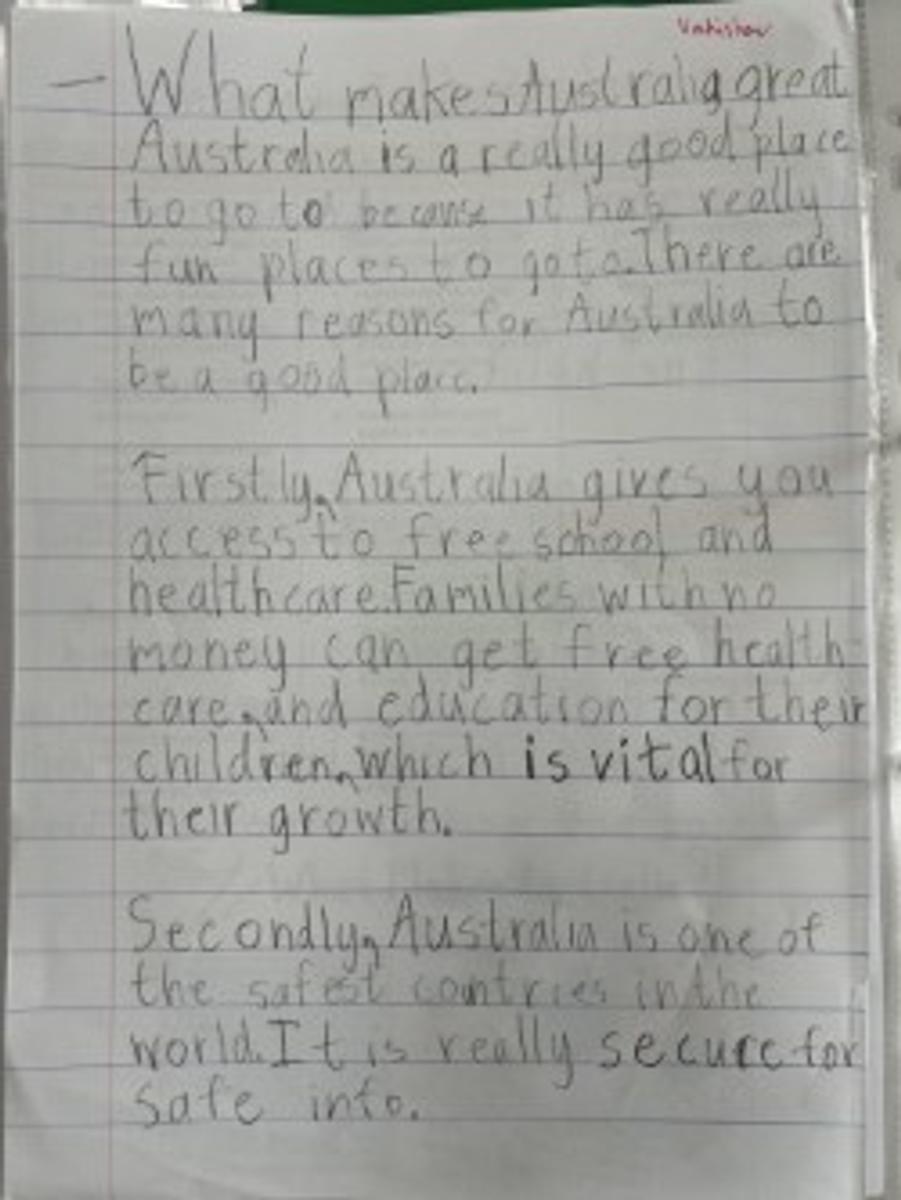 What makes Australia great
Australia is a really good place
to go to because it has really
fun places to go to. There are
many reasons for Australia to
be a good place.
Firstly, Australia gives you
access to free school and
healthcare. Families with no
money can get free health-
care, and education for their
children, which is vital for
their growth.
Secondly, Australia is one of
the safest countries in the
world. It is really secure for
safe info.